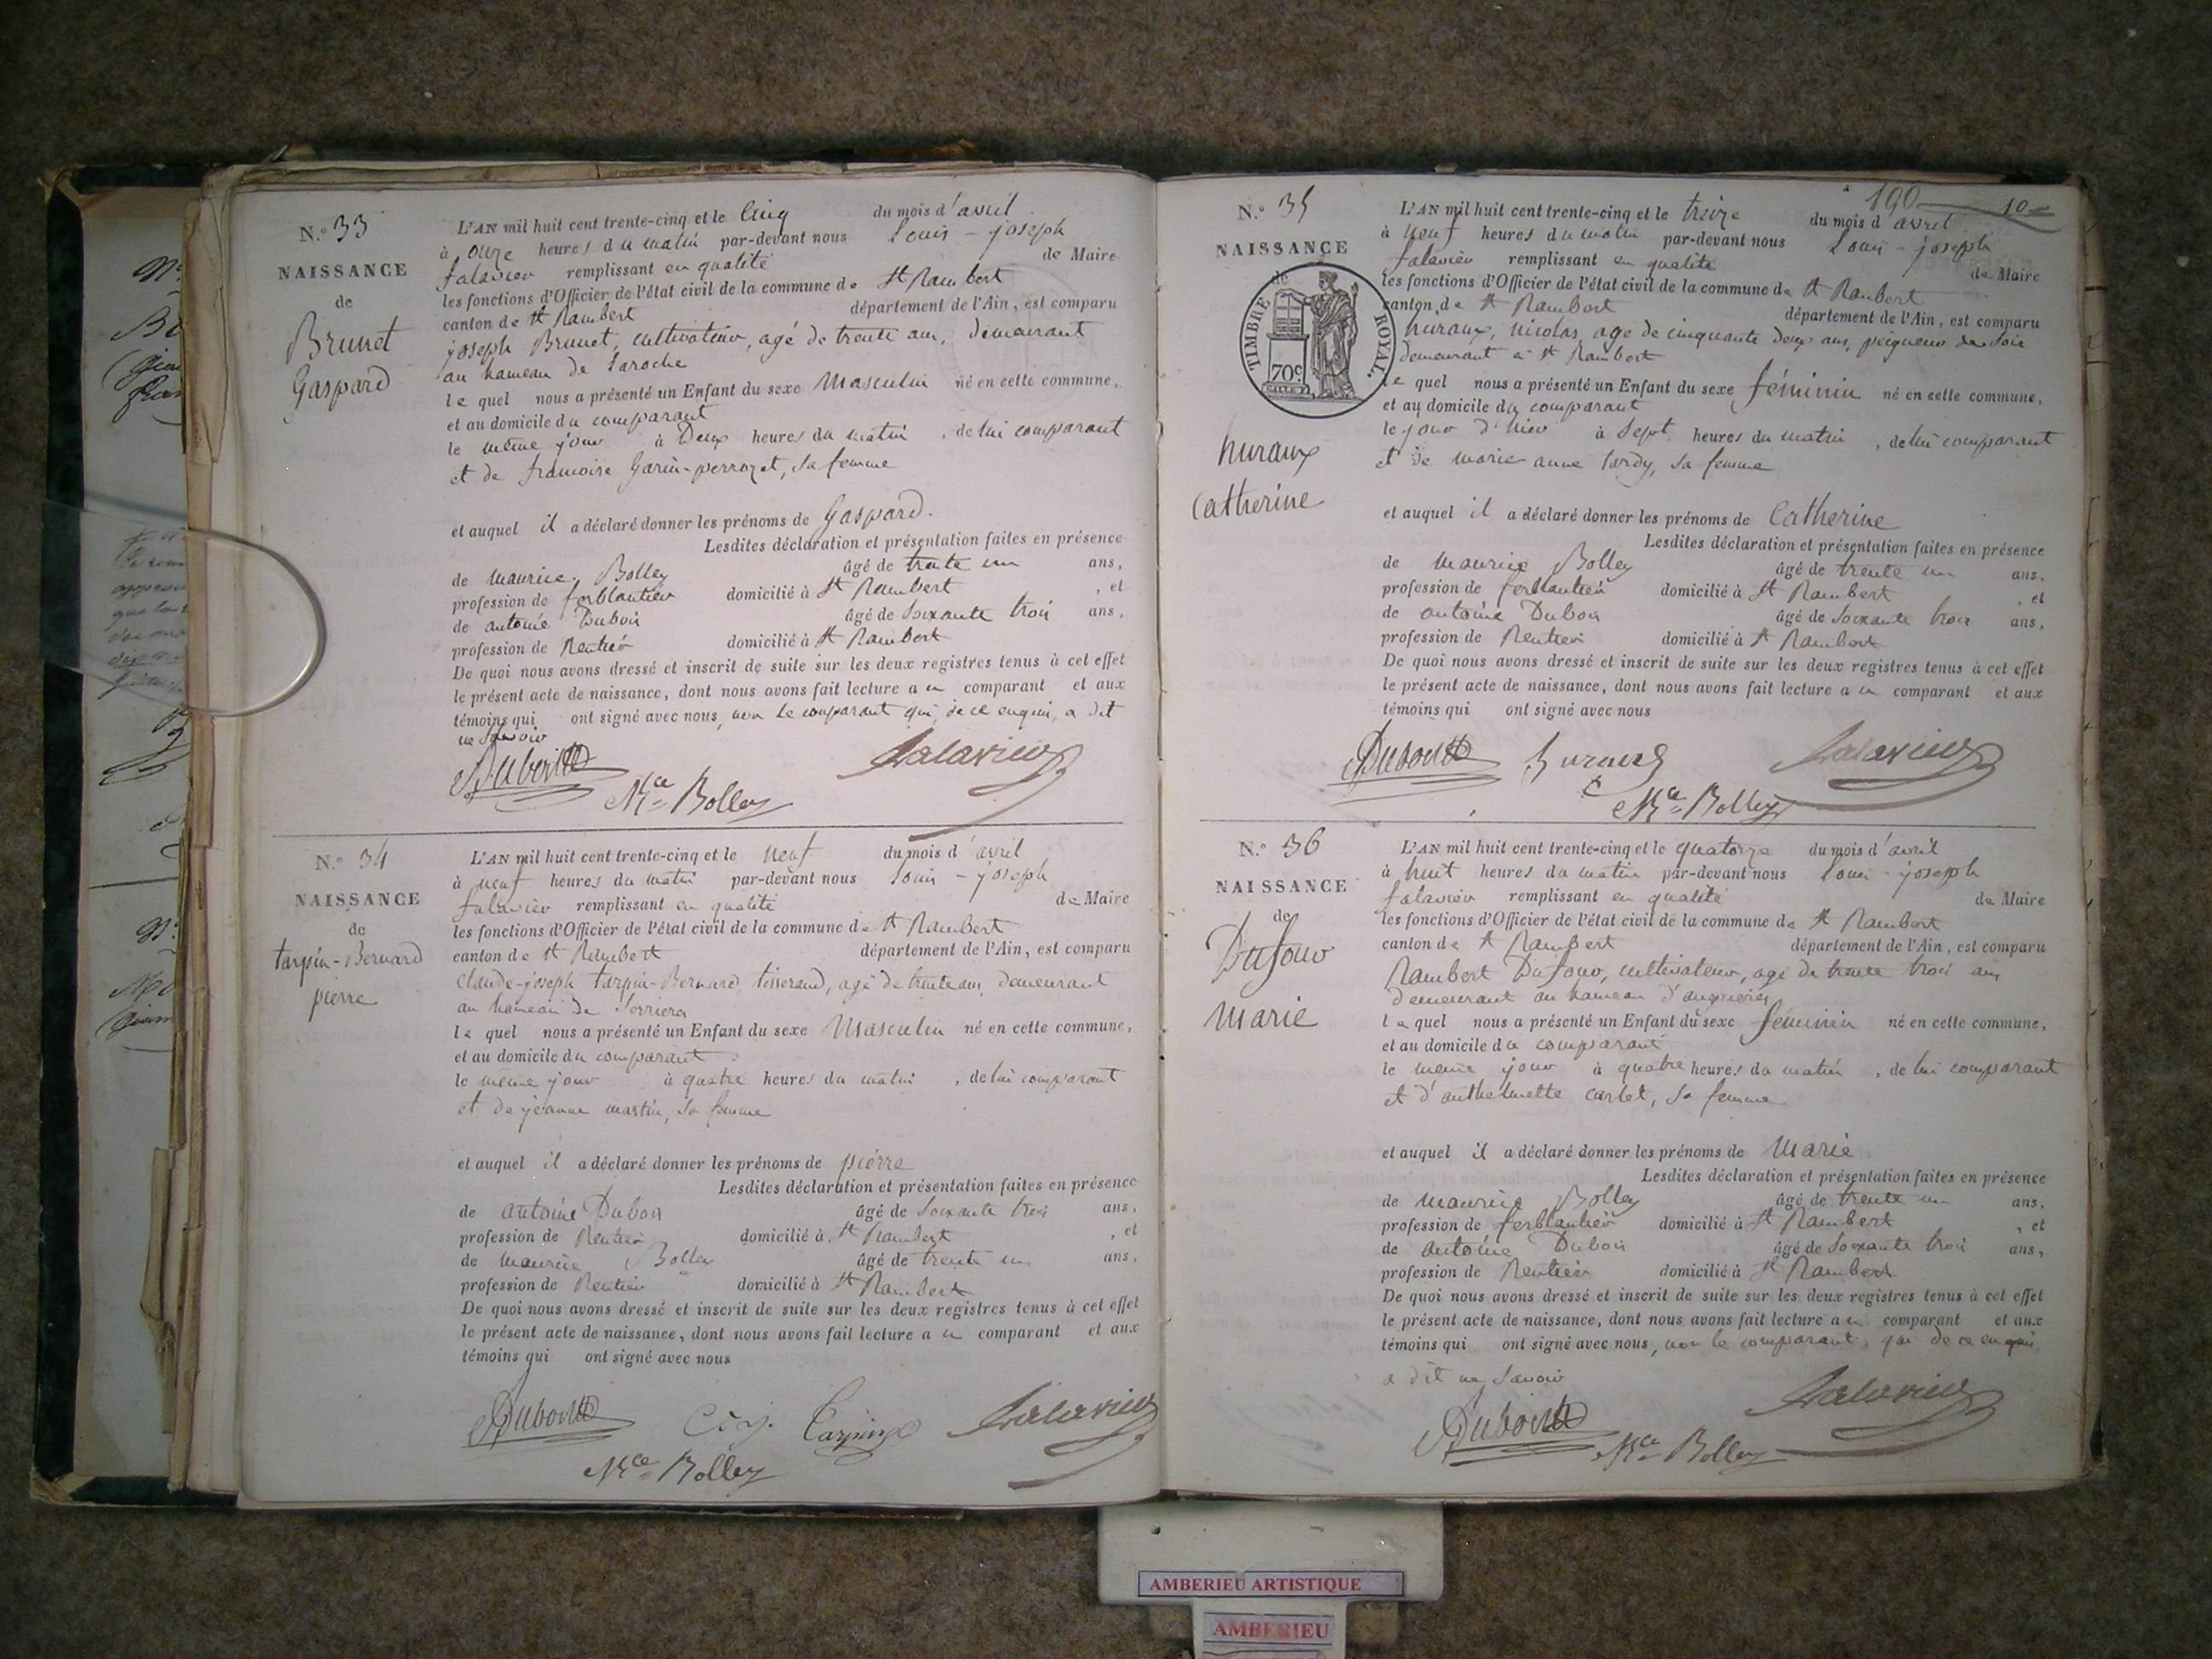 N.o 33
NAISSANCE
de
Brunet
Gaspard
L'AN mil huit cent trente-cinq et le cinq du mois d'avril
à onze heures du matin par-devant nous Louis - joseph
falavier remplissant en qualité de Maire
les fonctions d'Officier de l'état civil de la commune de St Rambert
canton de St Rambert département de l'Ain, est comparu
joseph Brunet, cultivateur, agé de trente ans, demeurant
au hameau de Laroche
le quel nous a présenté un Enfant du sexe Masculin né en cette commune,
et au domicile du comparant
le même jour à Deux heures du matin, de lui comparant
et de francoise Garin-perrozet, sa femme
et auquel il a déclaré donner les prénoms de Gaspard.
Lesdites déclaration et présentation faites en présence
de maurice Bolley âgé de trente un ans,
profession de ferblantier domicilié à St Rambert, et
de antoine Dubois âgé de soixante trois ans,
profession de Rentier domicilié à St Rambert
De quoi nous avons dressé et inscrit de suite sur les deux registres tenus à cet effet
le présent acte de naissance, dont nous avons fait lecture au comparant et aux
témoins qui ont signé avec nous, non le comparant qui, de ce enquis, a dit
ne savoir
Dubois falavier
Mce Bolley
N.o 34
NAISSANCE
de
tarpin-Bernard
pierre
L'AN mil huit cent trente-cinq et le neuf du mois d'avril
à neuf heures du matin par-devant nous Louis - joseph
falavier remplissant en qualité de Maire
les fonctions d'Officier de l'état civil de la commune de St Rambert
canton de St Rambert département de l'Ain, est comparu
Claude-joseph tarpin-Bernard, tisserand, agé de trente ans, demeurant
au hameau de Serrieres
le quel nous a présenté un Enfant du sexe Masculin né en cette commune,
et au domicile du comparant
le même jour à quatre heures du matin, de lui comparant
et de jeanne martin, sa femme
et auquel il a déclaré donner les prénoms de pierre
Lesdites déclaration et présentation faites en présence
de antoine Dubois âgé de soixante trois ans,
profession de Rentier domicilié à St Rambert, et
de maurice Bolley âgé de trente un ans,
profession de Rentier domicilié à St Rambert
De quoi nous avons dressé et inscrit de suite sur les deux registres tenus à cet effet
le présent acte de naissance, dont nous avons fait lecture au comparant et aux
témoins qui ont signé avec nous
Dubois Tarpin falavier
Mce Bolley
190 10
N.o 35
NAISSANCE
de
TIMBRE ROYAL.
70c
huraux
Catherine
L'AN mil huit cent trente-cinq et le treize du mois d'avril
à neuf heures du matin par-devant nous Louis - joseph
falavier remplissant en qualité de Maire
les fonctions d'Officier de l'état civil de la commune de St Rambert
canton de St Rambert département de l'Ain, est comparu
huraux, nicolas, age de cinquante deux ans, peigneur de soie
demeurant à St Rambert
le quel nous a présenté un Enfant du sexe féminin né en cette commune,
et au domicile du comparant
le jour d'hier à sept heures du matin, de lui comparant
et de marie anne tardy, sa femme
et auquel il a déclaré donner les prénoms de Catherine
Lesdites déclaration et présentation faites en présence
de maurice Bolley âgé de trente un ans,
profession de ferblantier domicilié à St Rambert, et
de antoine Dubois âgé de soixante trois ans,
profession de Rentier domicilié à St Rambert
De quoi nous avons dressé et inscrit de suite sur les deux registres tenus à cet effet
le présent acte de naissance, dont nous avons fait lecture au comparant et aux
témoins qui ont signé avec nous
Dubois huraux falavier
Mce Bolley
N.o 36
NAISSANCE
de
Dufour
Marie
L'AN mil huit cent trente-cinq et le quatorze du mois d'avril
à huit heures du matin par-devant nous Louis - joseph
falavier remplissant en qualité de Maire
les fonctions d'Officier de l'état civil de la commune de St Rambert
canton de St Rambert département de l'Ain, est comparu
Rambert Dufour, cultivateur, agé de trente trois ans
demeurant au hameau d'angrieres
le quel nous a présenté un Enfant du sexe féminin né en cette commune,
et au domicile du comparant
le même jour à quatre heures du matin, de lui comparant
et d'anthelmette carlet, sa femme
et auquel il a déclaré donner les prénoms de Marie
Lesdites déclaration et présentation faites en présence
de maurice Bolley âgé de trente un ans,
profession de ferblantier domicilié à St Rambert, et
de antoine Dubois âgé de soixante trois ans,
profession de Rentier domicilié à St Rambert
De quoi nous avons dressé et inscrit de suite sur les deux registres tenus à cet effet
le présent acte de naissance, dont nous avons fait lecture au comparant et aux
témoins qui ont signé avec nous, non le comparant, qui de ce enquis
a dit ne savoir
Dubois falavier
Mce Bolley
AMBERIEU ARTISTIQUE
AMBERIEU